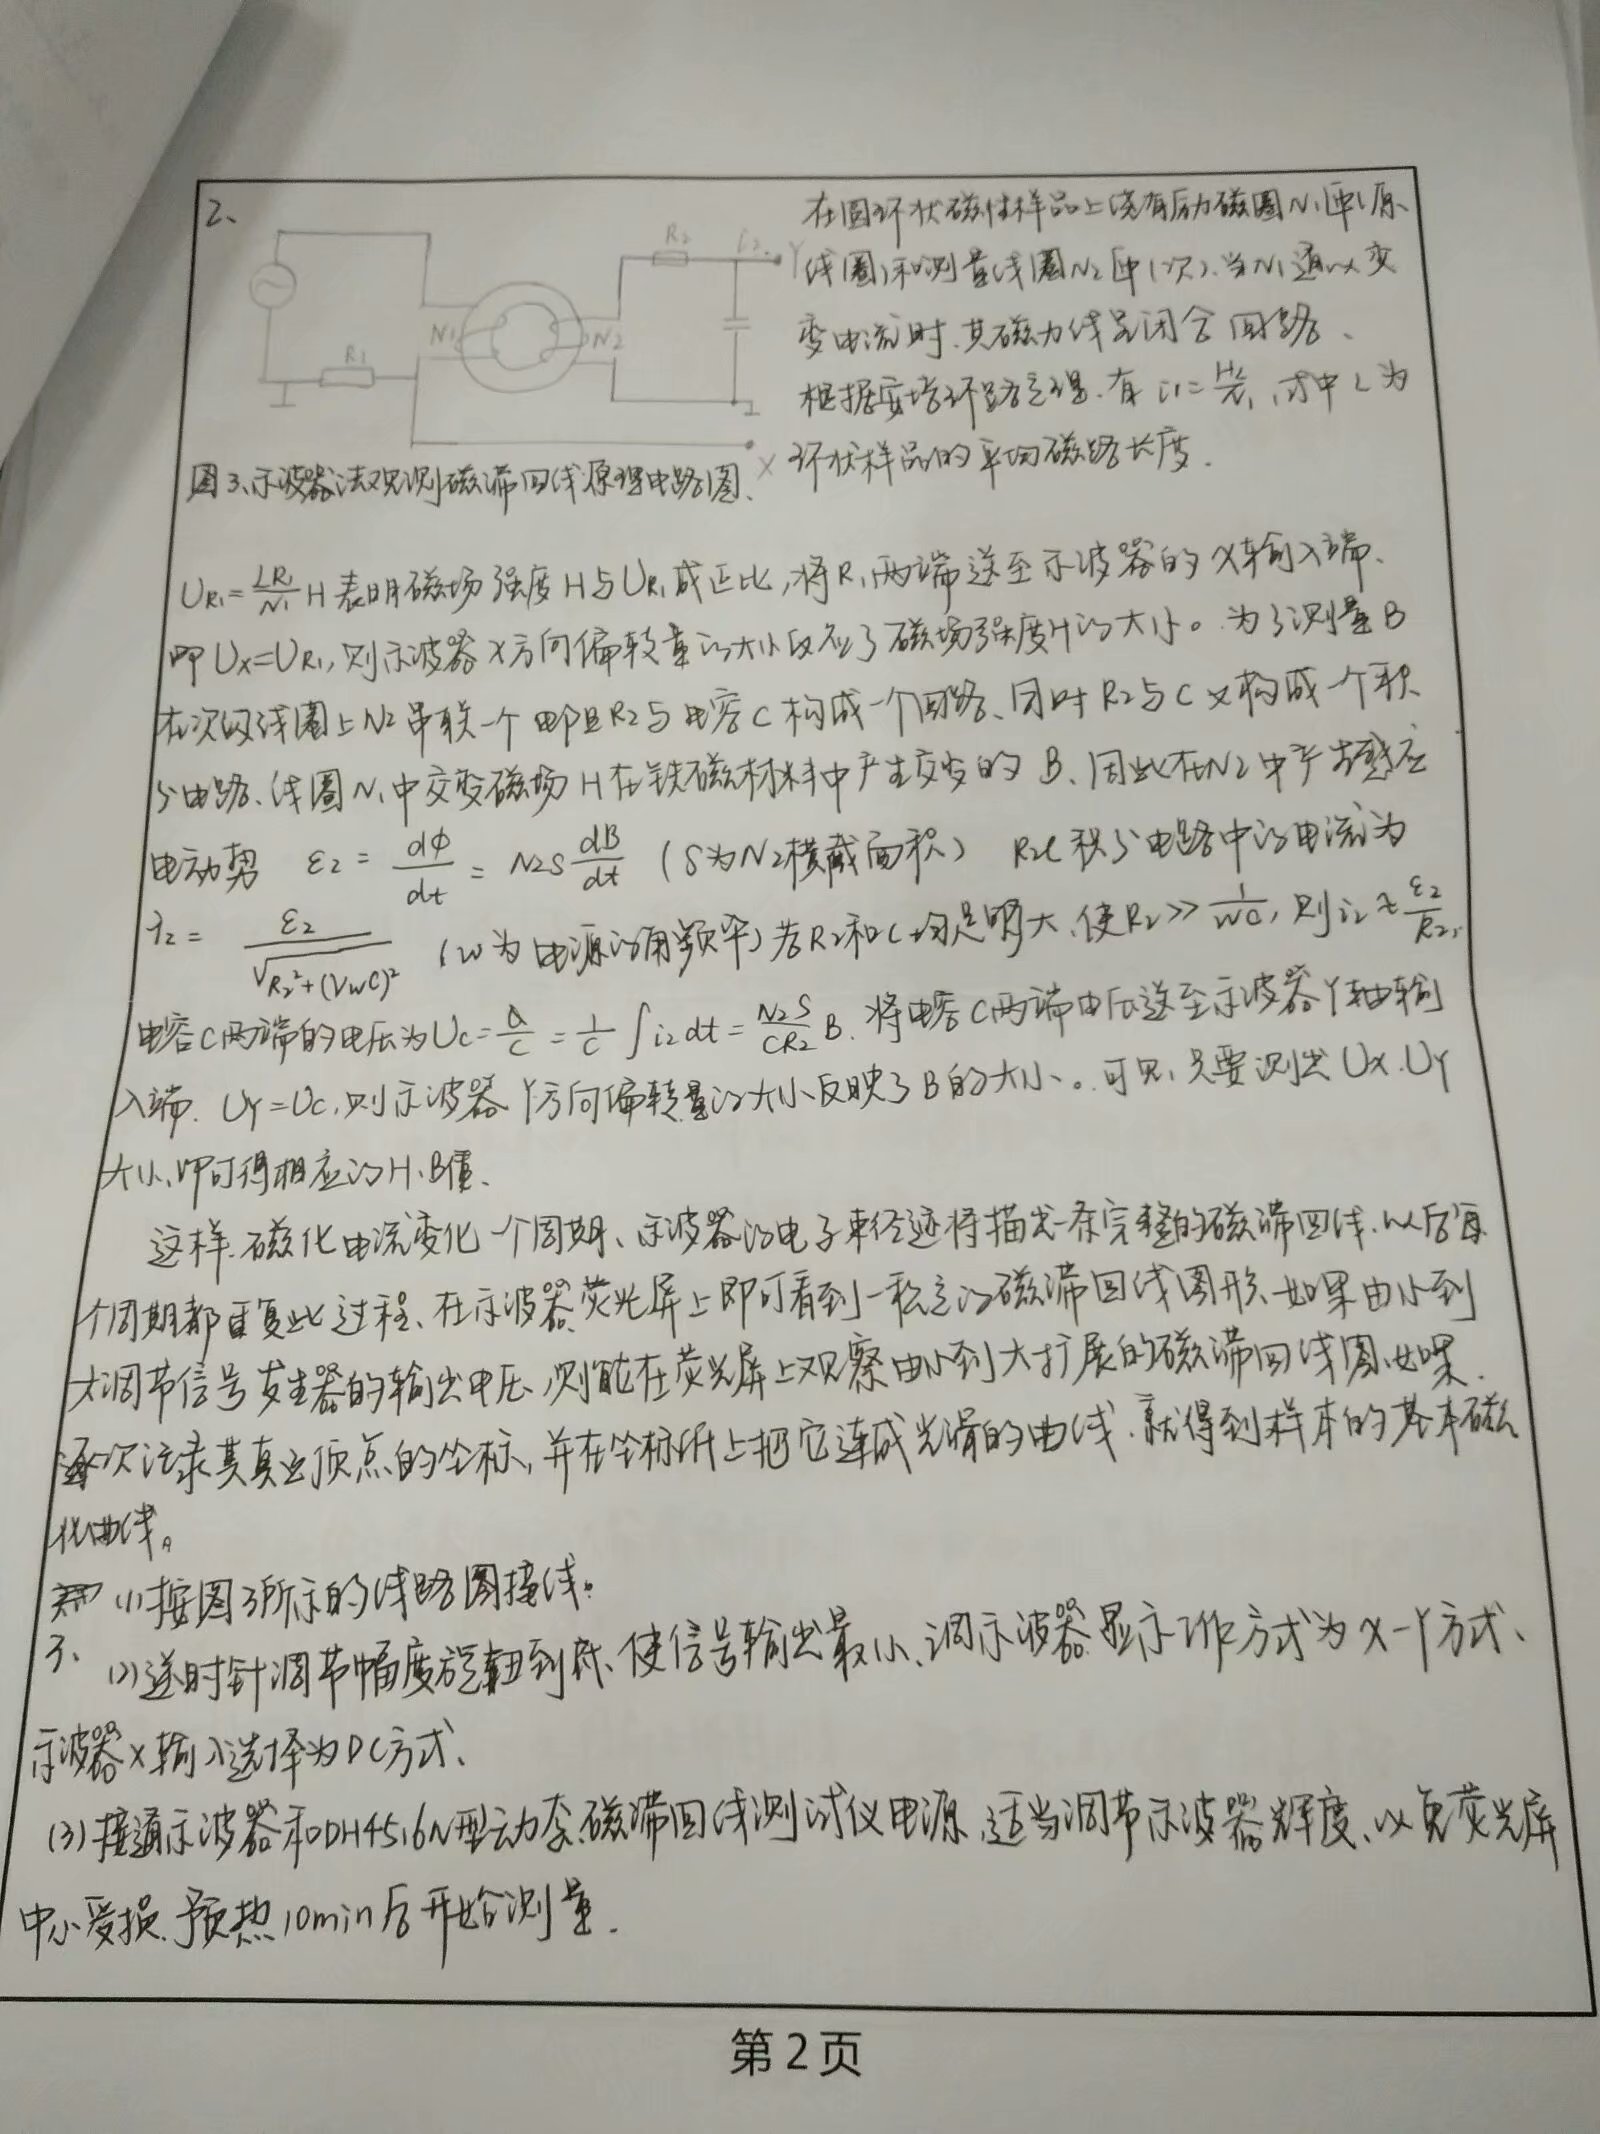 2、
在圆环状磁性样品上绕有励磁圈N₁匝(原
线圈)和测量线圈N₂匝(次).当N₁通以交
变电流时.其磁力线是闭合回路、
根据安培环路定理.有 i₁=HL/N₁,式中L为
环状样品的平均磁路长度.
R₁
N₁
N₂
R₂
i₂
Y
X
图3、示波器法观测磁滞回线原理电路图、
U_R₁=LR₁/N₁ H 表明磁场强度H与U_R₁成正比,将R₁两端送至示波器的X轴输入端.
即Ux=U_R₁,则示波器X方向偏转量的大小反应了磁场强度H的大小。为了测量B
在次级线圈上N₂串联一个电阻R₂与电容C构成一个回路、同时R₂与C又构成一个积
分电路、线圈N₁中交变磁场H在铁磁材料中产生交变的B、因此在N₂中产生感应
电动势 ε₂=dΦ/dt=N₂S dB/dt (S为N₂横截面积) R₂C积分电路中的电流为
i₂=ε₂/√(R₂²+(1/wC)²) (w为电源的角频率)若R₂和C均足够大、使R₂≫1/wC,则i₂≈ε₂/R₂,
电容C两端的电压为Uc=Q/C=1/C∫i₂dt=N₂S/CR₂ B.将电容C两端电压送至示波器Y轴输
入端.UY=UC,则示波器Y方向偏转量的大小反映了B的大小。可见,只要测出UX.UY
大小、即可得相应的H、B值、
这样.磁化电流变化一个周期、示波器的电子束径迹将描出一条完整的磁滞回线.以后每
个周期都重复此过程、在示波器荧光屏上即可看到一稳定的磁滞回线图形、如果由小到
大调节信号发生器的输出电压,则能在荧光屏上观察由小到大扩展的磁滞回线图、如果
逐次记录其真正顶点的坐标,并在坐标纸上把它连成光滑的曲线.就得到样本的基本磁
化曲线。
(1)按图3所示的线路图接线。
3、
(2)逆时针调节幅度旋钮到底、使信号输出最小、调示波器显示工作方式为X-Y方式、
示波器X输入选择为DC方式、
(3)接通示波器和DH4516N型动态磁滞回线测试仪电源、适当调节示波器辉度、以免荧光屏
中心受损.预热10min后开始测量.
第2页